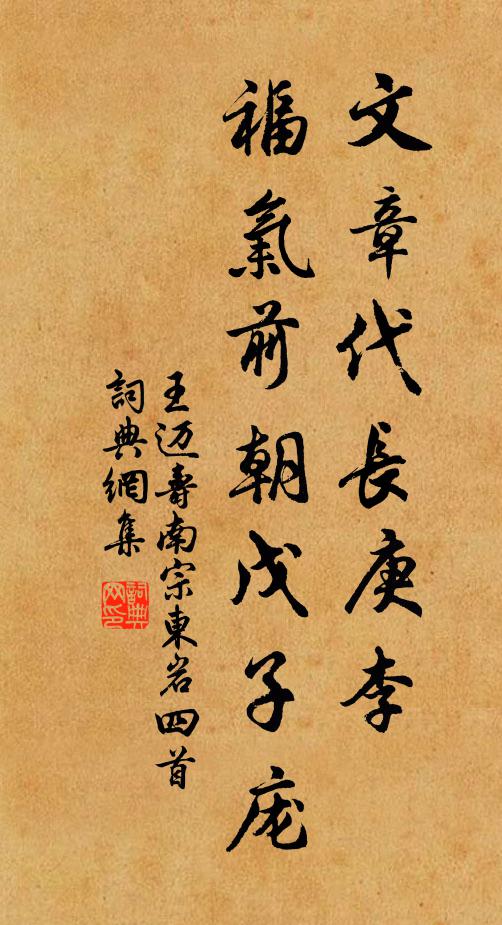 文章代長庚李
福氣前朝戊子庞
王迈壽南宗東岩四首
詞典網集
詞典網印